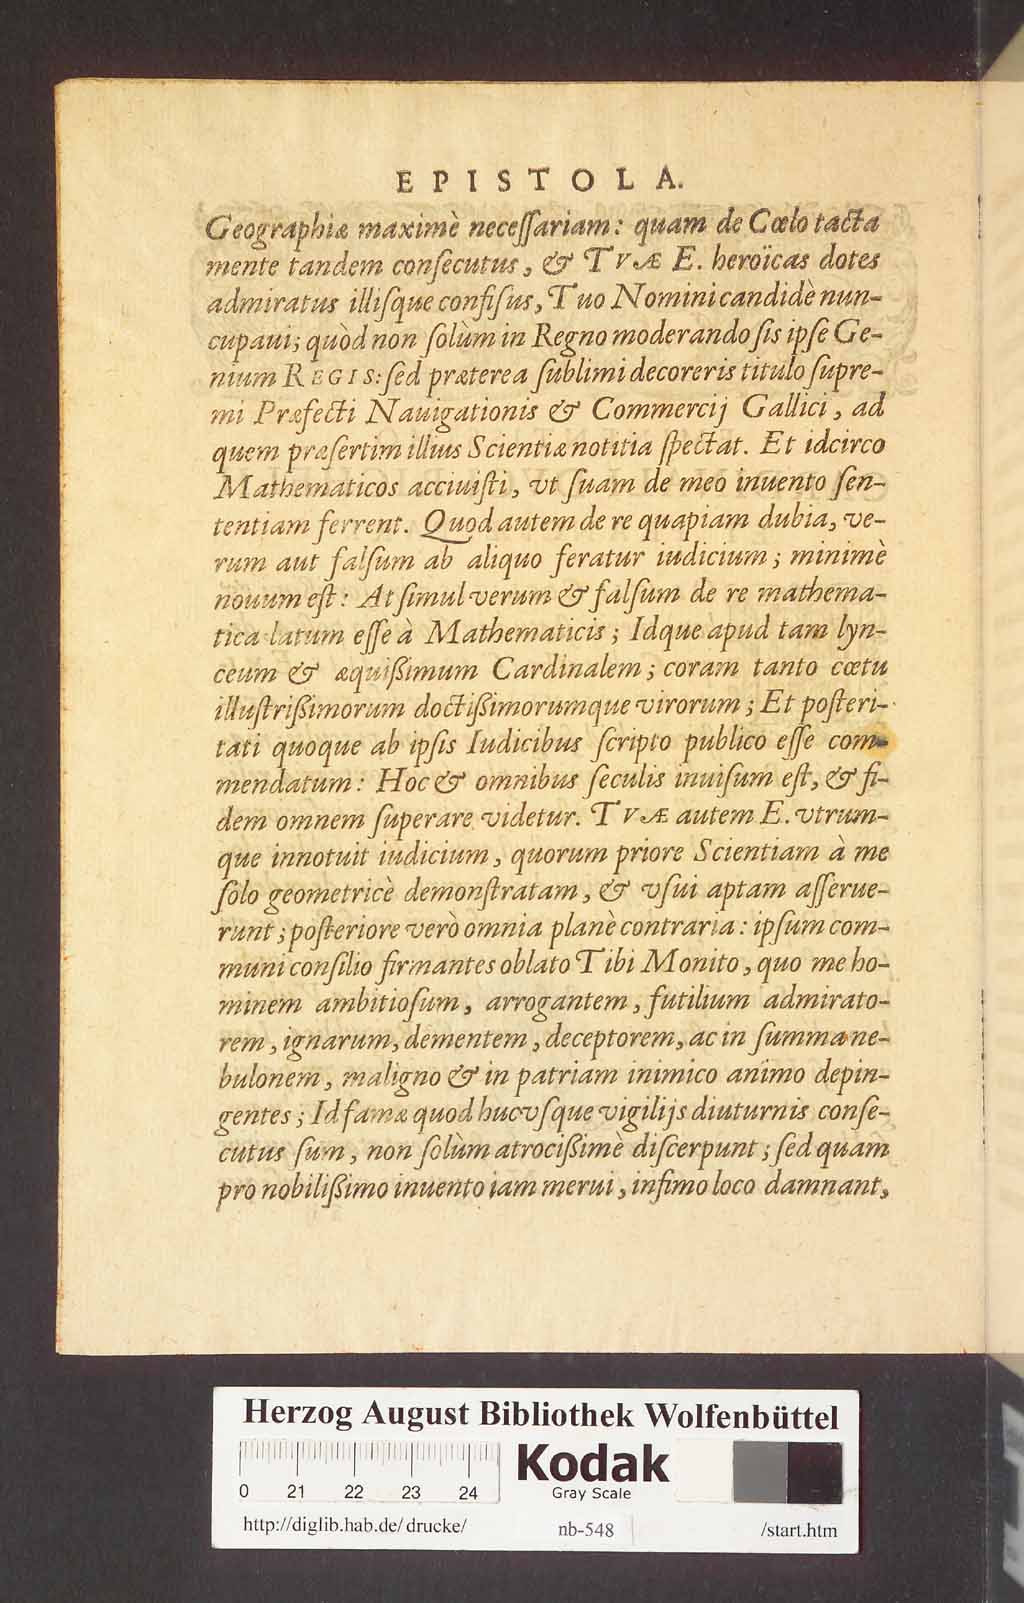 EPISTOLA.
Geographiæ maximè neceſſariam: quam de Cœlo tacta
mente tandem conſecutus, & TVÆ E. heroïcas dotes
admiratus illiſque confiſus, Tuo Nomini candidè nun-
cupaui; quòd non ſolùm in Regno moderando ſis ipſe Ge-
nium REGIS: ſed præterea ſublimi decoreris titulo ſupre-
mi Præfecti Nauigationis & Commercij Gallici, ad
quem præſertim illius Scientiæ notitia ſpectat. Et idcirco
Mathematicos acciuiſti, vt ſuam de meo inuento ſen-
tentiam ferrent. Quod autem de re quapiam dubia, ve-
rum aut falſum ab aliquo feratur iudicium; minimè
nouum eſt: At ſimul verum & falſum de re mathema-
tica latum eſſe à Mathematicis; Idque apud tam lyn-
ceum & æquißimum Cardinalem; coram tanto cœtu
illuſtrißimorum doctißimorumque virorum; Et poſteri-
tati quoque ab ipſis Iudicibus ſcripto publico eſſe com-
mendatum: Hoc & omnibus ſeculis inuiſum eſt, & fi-
dem omnem ſuperare videtur. TVÆ autem E. vtrum-
que innotuit iudicium, quorum priore Scientiam à me
ſolo geometricè demonſtratam, & vſui aptam aſſerue-
runt; poſteriore verò omnia planè contraria: ipſum com-
muni conſilio firmantes oblato Tibi Monito, quo me ho-
minem ambitioſum, arrogantem, futilium admirato-
rem, ignarum, dementem, deceptorem, ac in ſumma ne-
bulonem, maligno & in patriam inimico animo depin-
gentes; Id famæ quod hucvſque vigilijs diuturnis conſe-
cutus ſum, non ſolùm atrocißimè diſcerpunt; ſed quam
pro nobilißimo inuento iam merui, infimo loco damnant,
Herzog August Bibliothek Wolfenbüttel
0 21 22 23 24
Kodak
Gray Scale
http://diglib.hab.de/drucke/ nb-548 /start.htm